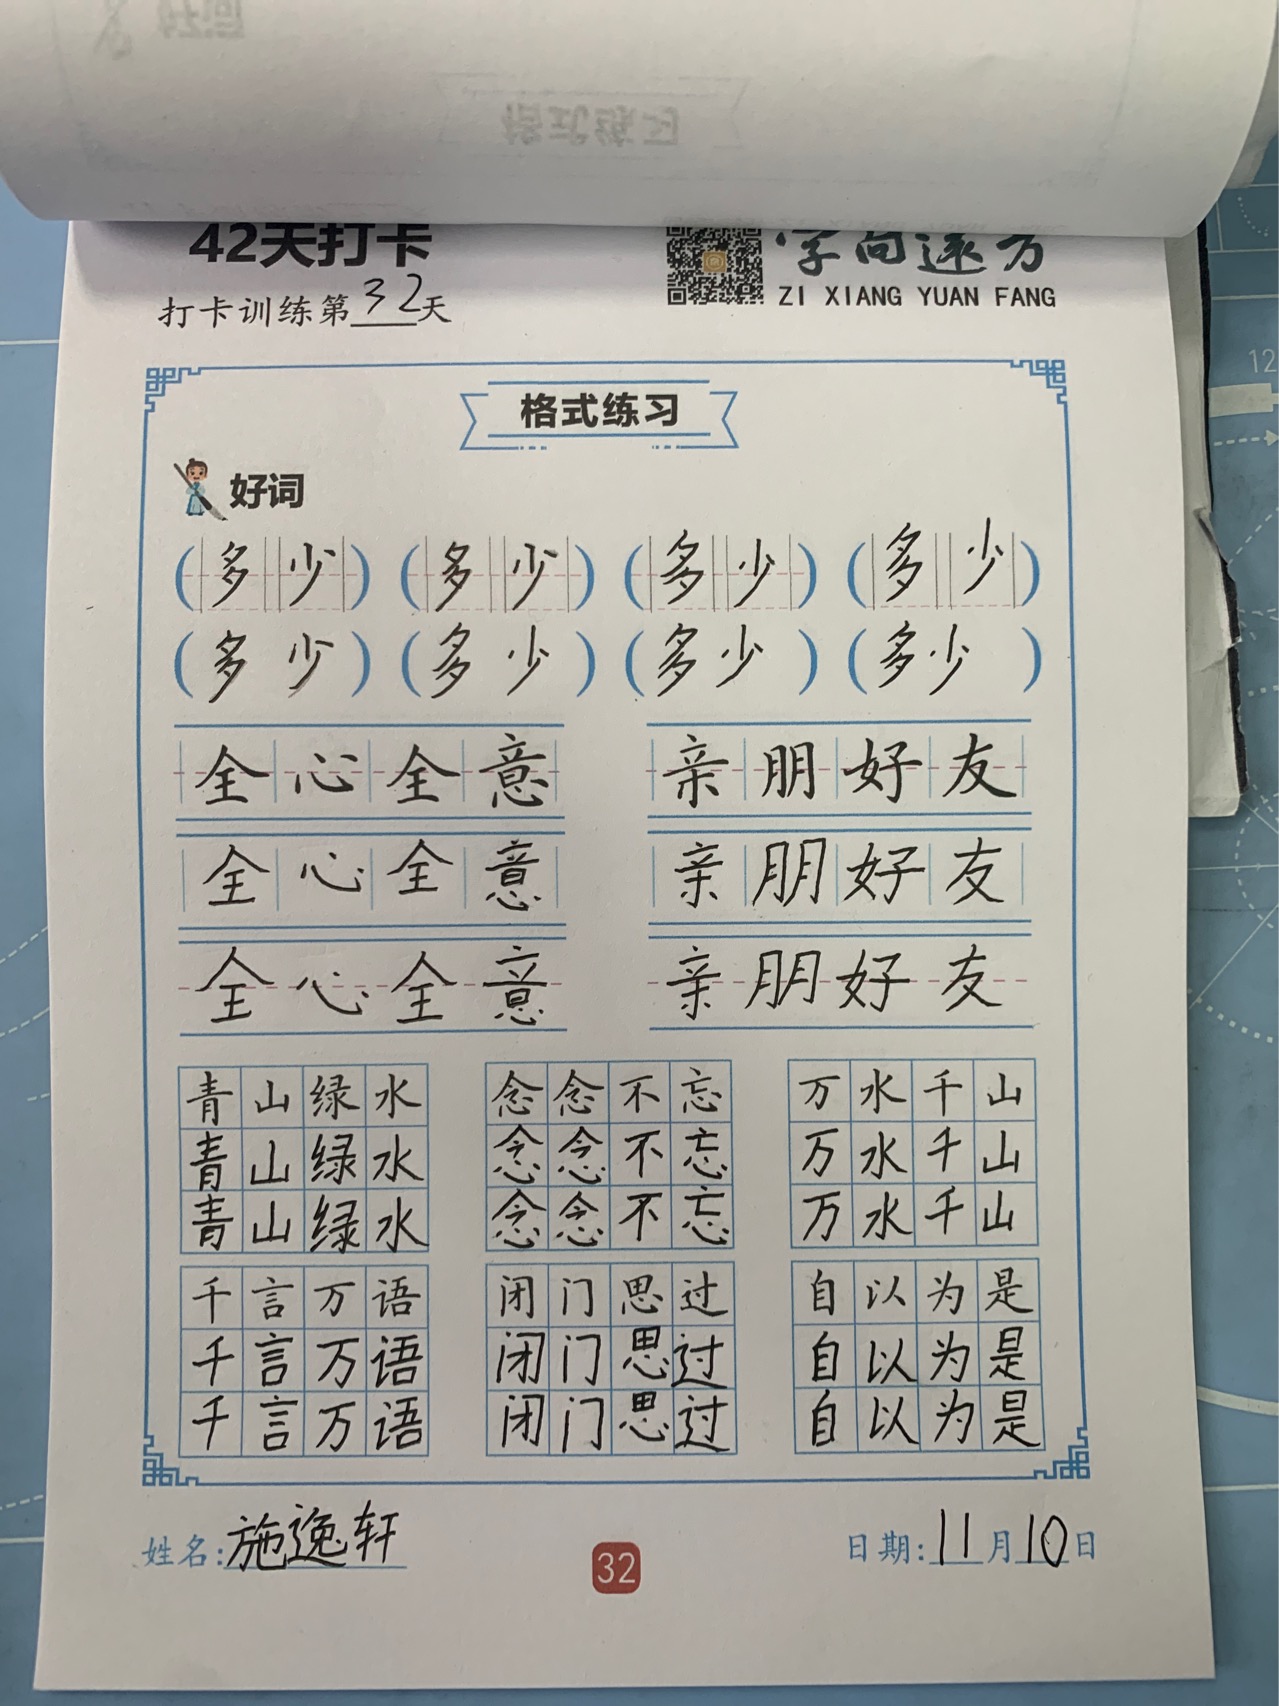 42天打卡
字向远方
ZI XIANG YUAN FANG
打卡训练第32天
格式练习
好词
(多少) (多少) (多少) (多少)
(多少) (多少) (多少) (多少)
全心全意 亲朋好友
全心全意 亲朋好友
全心全意 亲朋好友
青山绿水 念念不忘 万水千山
青山绿水 念念不忘 万水千山
青山绿水 念念不忘 万水千山
千言万语 闭门思过 自以为是
千言万语 闭门思过 自以为是
千言万语 闭门思过 自以为是
姓名:施逸轩 32 日期:11月10日
12